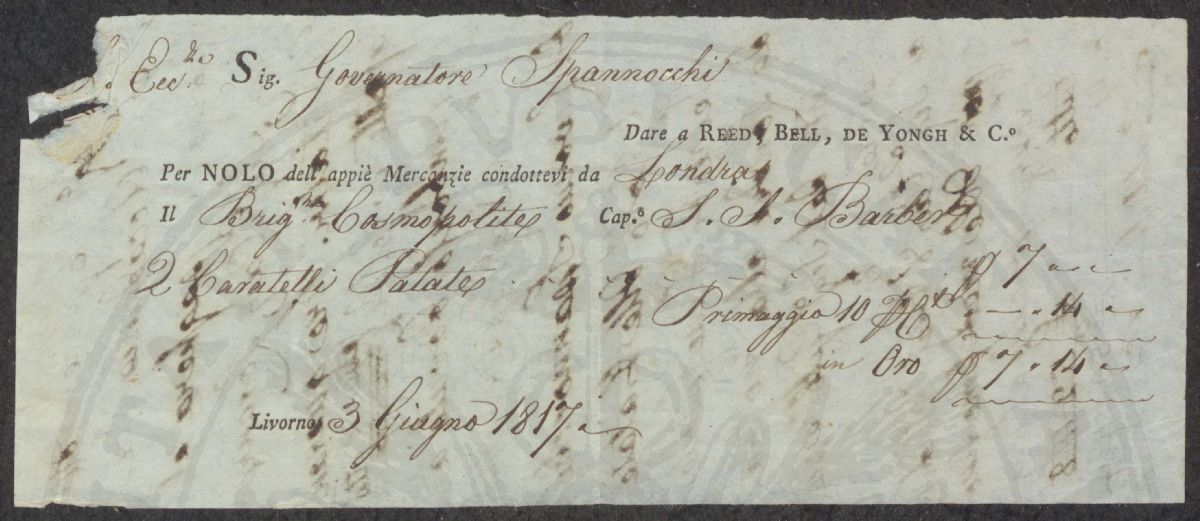 Ecc.za Sig. Governatore Spannocchi
Dare a REED, BELL, DE YONGH & C.o
Per NOLO dell'appiè Mercanzie condottevi da Londra
Il Brig.ne Cosmopolite Cap.o S. S. Barber
2 Caratelli Patate p 7 " "
Primaggio 10 p Ct " 14 "
in Oro p 7 " 14 "
Livorno 3 Giugno 1817